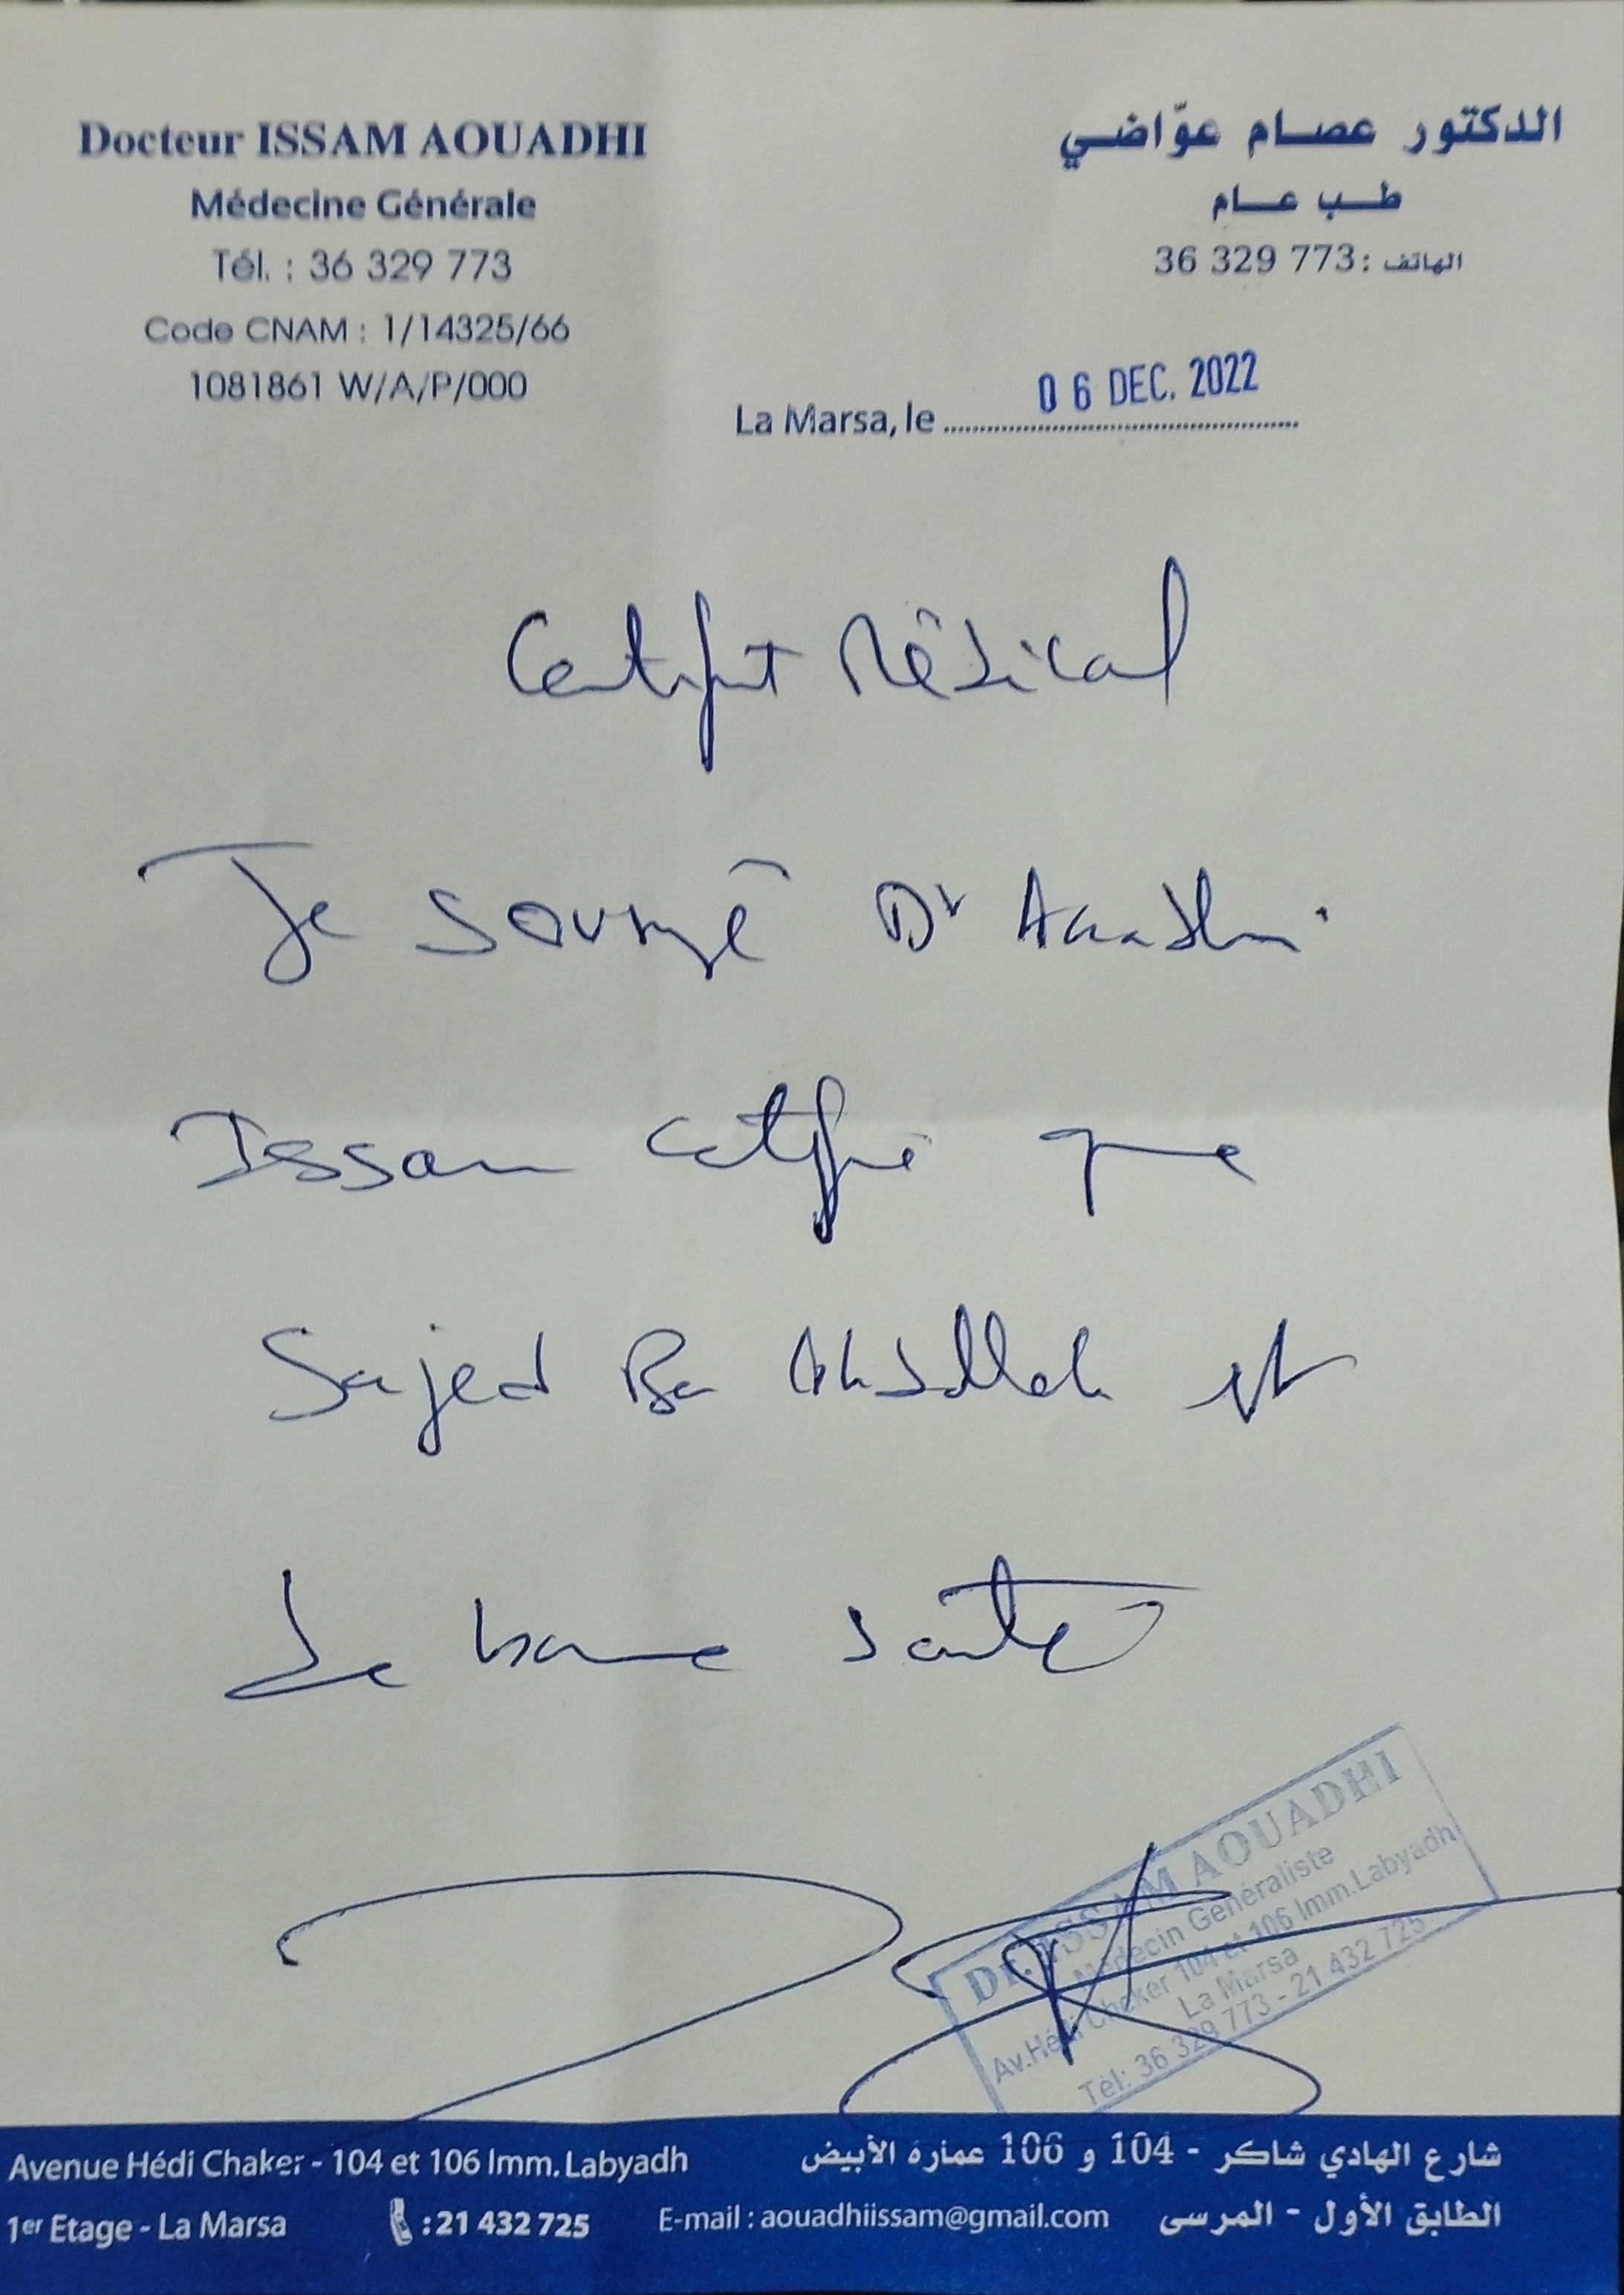 Docteur ISSAM AOUADHI
Médecine Générale
Tél. : 36 329 773
Code CNAM : 1/14325/66
1081861 W/A/P/000
الدكتور عصام عوّاضي
طب عام
الهاتف : 36 329 773
La Marsa, le 06 DEC. 2022
Certificat Médical
Je soussigné Dr Aouadhi
Issam certifie que
Sajed Ben Abdallah est
de bonne santé
Dr. ISSAM AOUADHI
Médecin Généraliste
Av.Hédi Chaker 104 et 106 Imm.Labyadh
La Marsa
Tél: 36 329 773 - 21 432 725
Avenue Hédi Chaker - 104 et 106 Imm. Labyadh
1er Etage - La Marsa : 21 432 725 E-mail : aouadhiissam@gmail.com
شارع الهادي شاكر - 104 و 106 عمارة الأبيض
الطابق الأول - المرسى